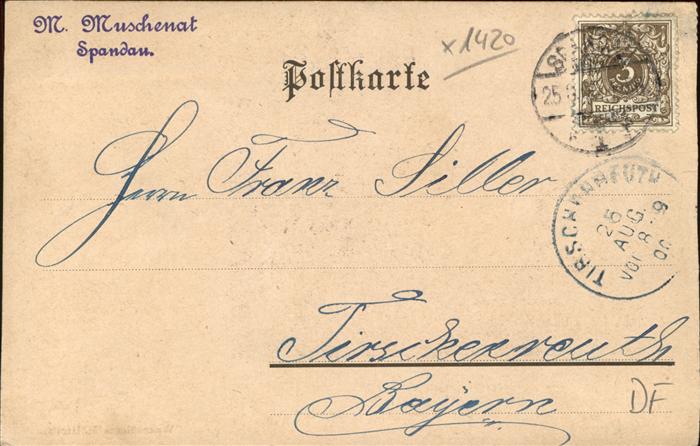 M. Muschenat
Spandau.
x1420
Postkarte
3
REICHSPOST
25
Herrn Franz Siller
TIRSCHENREUTH
26
AUG.
VOR. 8-9
00
Tirschenreuth
Bayern
DF